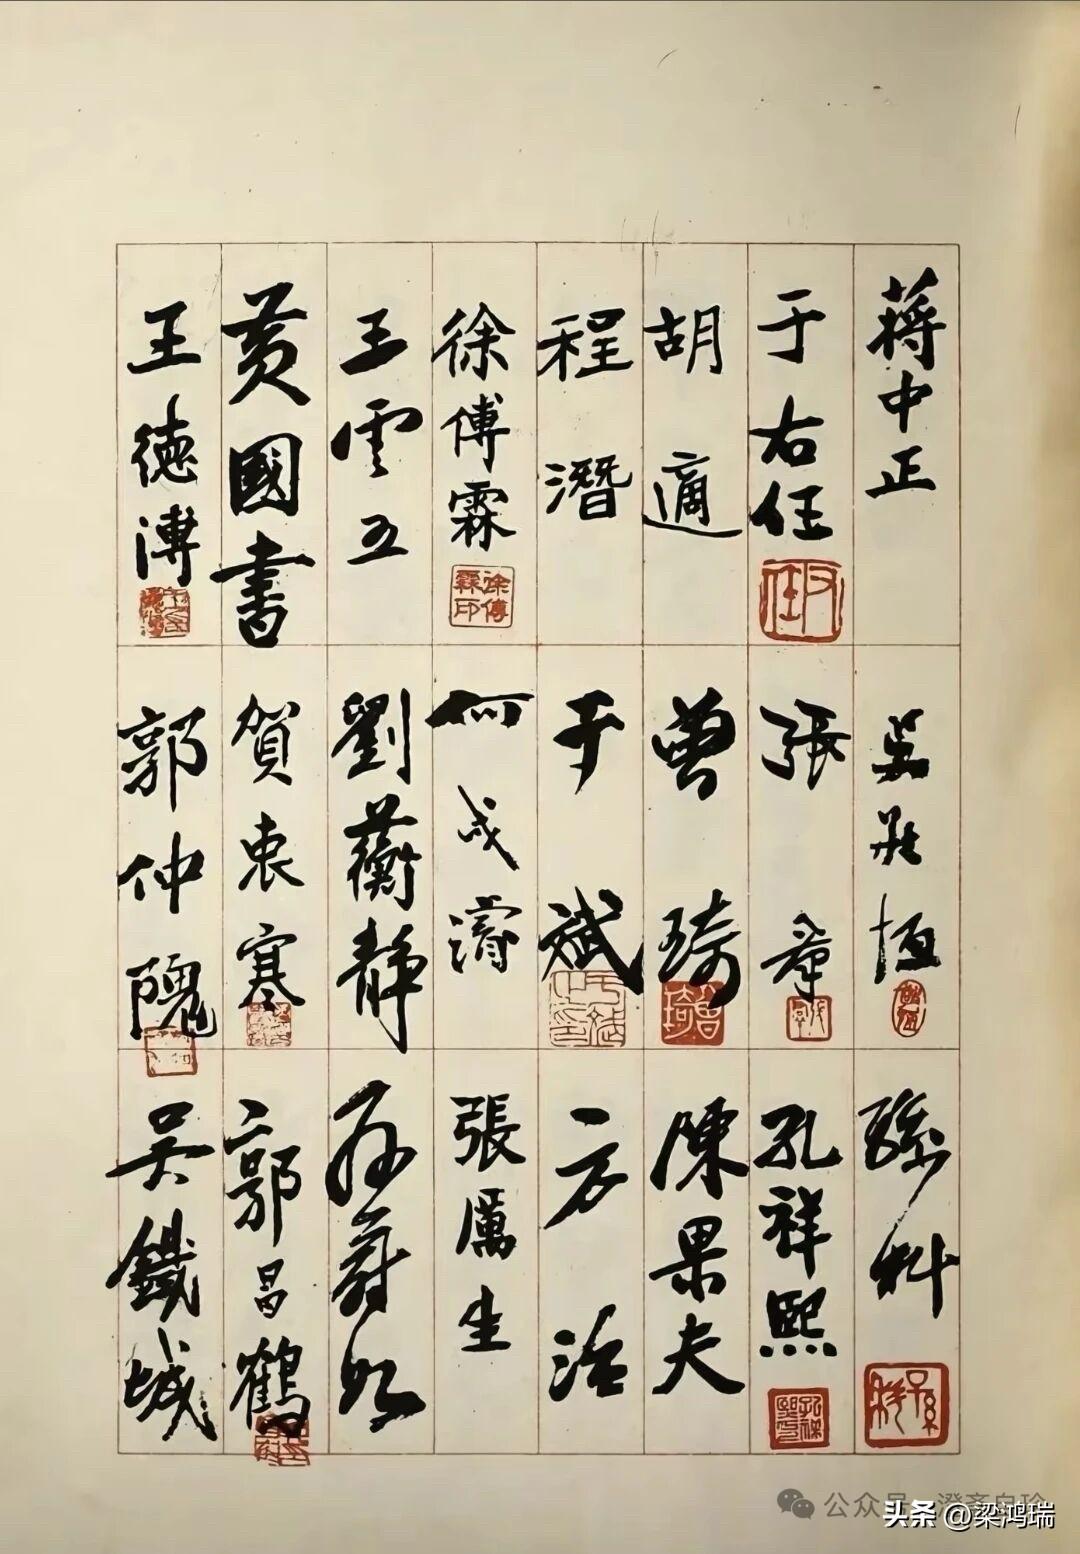 蔣中正
于右任
右任
胡適
程潛
徐傅霖
徐傅霖印
王雲五
黃國書
王德溥
吳敬恆
張羣
曾琦
曾琦
于斌
何成濬
劉蘅靜
賀衷寒
郭仲隗
孫科
孫科
孔祥熙
陳果夫
方治
張厲生
孫蔚如
郭昌鶴
吳鐵城
公众号
头条 @梁鸿瑞